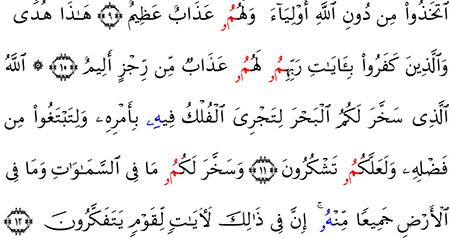 اَتَّخَذُواْ مِن دُونِ اللَّهِ أَوْلِيَآءَ وَلَهُمُۥ عَذَابٌ عَظِيمٌ ۝٩ هَـٰذَا هُدًى
وَالَّذِينَ كَفَرُواْ بِـَٔايَـٰتِ رَبِّهِمُۥ لَهُمُۥ عَذَابٌ مِّن رِّجْزٍ أَلِيمٍ ۝١٠ ۞ اللَّهُ
الَّذِى سَخَّرَ لَكُمُ الْبَحْرَ لِتَجْرِىَ الْفُلْكُ فِيهِۦ بِأَمْرِهِۦ وَلِتَبْتَغُواْ مِن
فَضْلِهِۦ وَلَعَلَّكُمُۥ تَشْكُرُونَ ۝١١ وَسَخَّرَ لَكُمُۥ مَا فِى السَّمَـٰوَٰتِ وَمَا فِى
الْأَرْضِ جَمِيعًا مِّنْهُۥ ۚ إِنَّ فِى ذَٰلِكَ لَأَيَـٰتٍ لِّقَوْمٍ يَتَفَكَّرُونَ ۝١٢